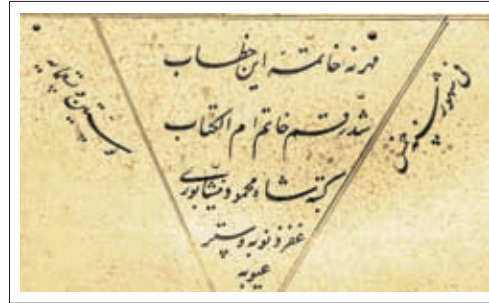 مهر نه خاتمهٔ این خطاب
شد رقم خاتم ام الکتاب
کتبه شاه محمود نیشابوری
غفر ذنوبه و ستر
عیوبه
فی شهور سنه
و تسعمایه